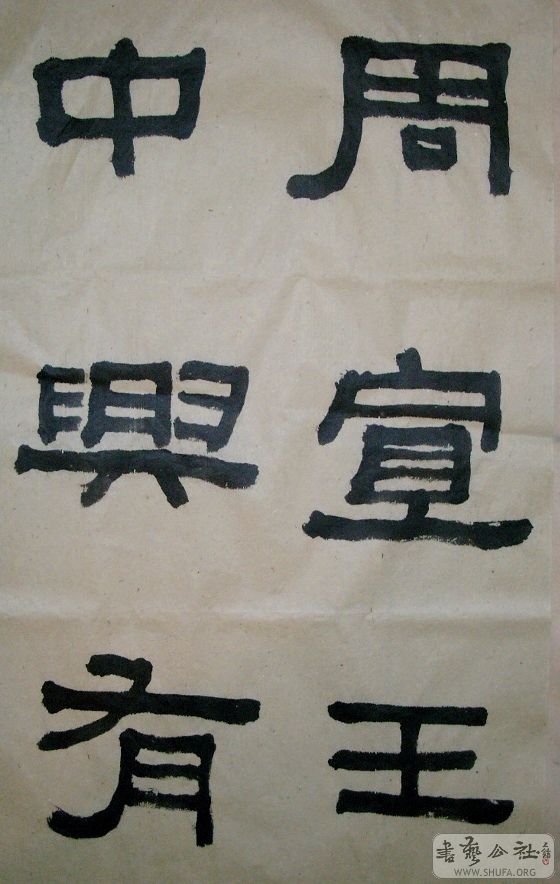 周宣王
中興有
書藝公社
WWW.SHUFA.ORG